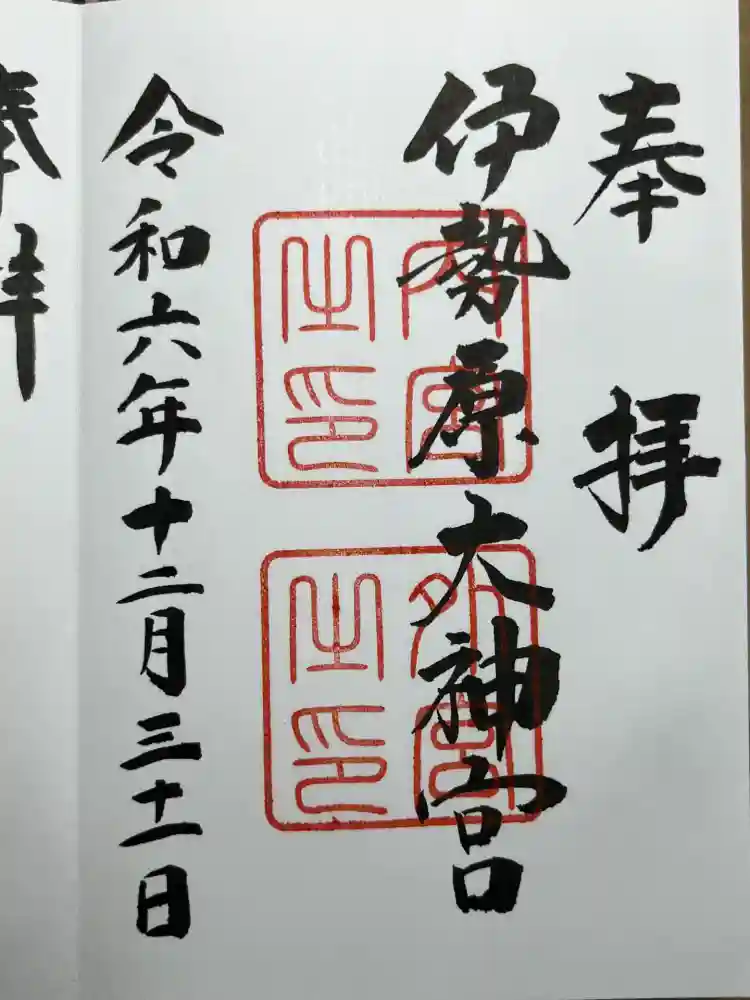 奉拝
伊勢原大神宮
内宮之印
外宮之印
令和六年十二月三十一日
奉拝